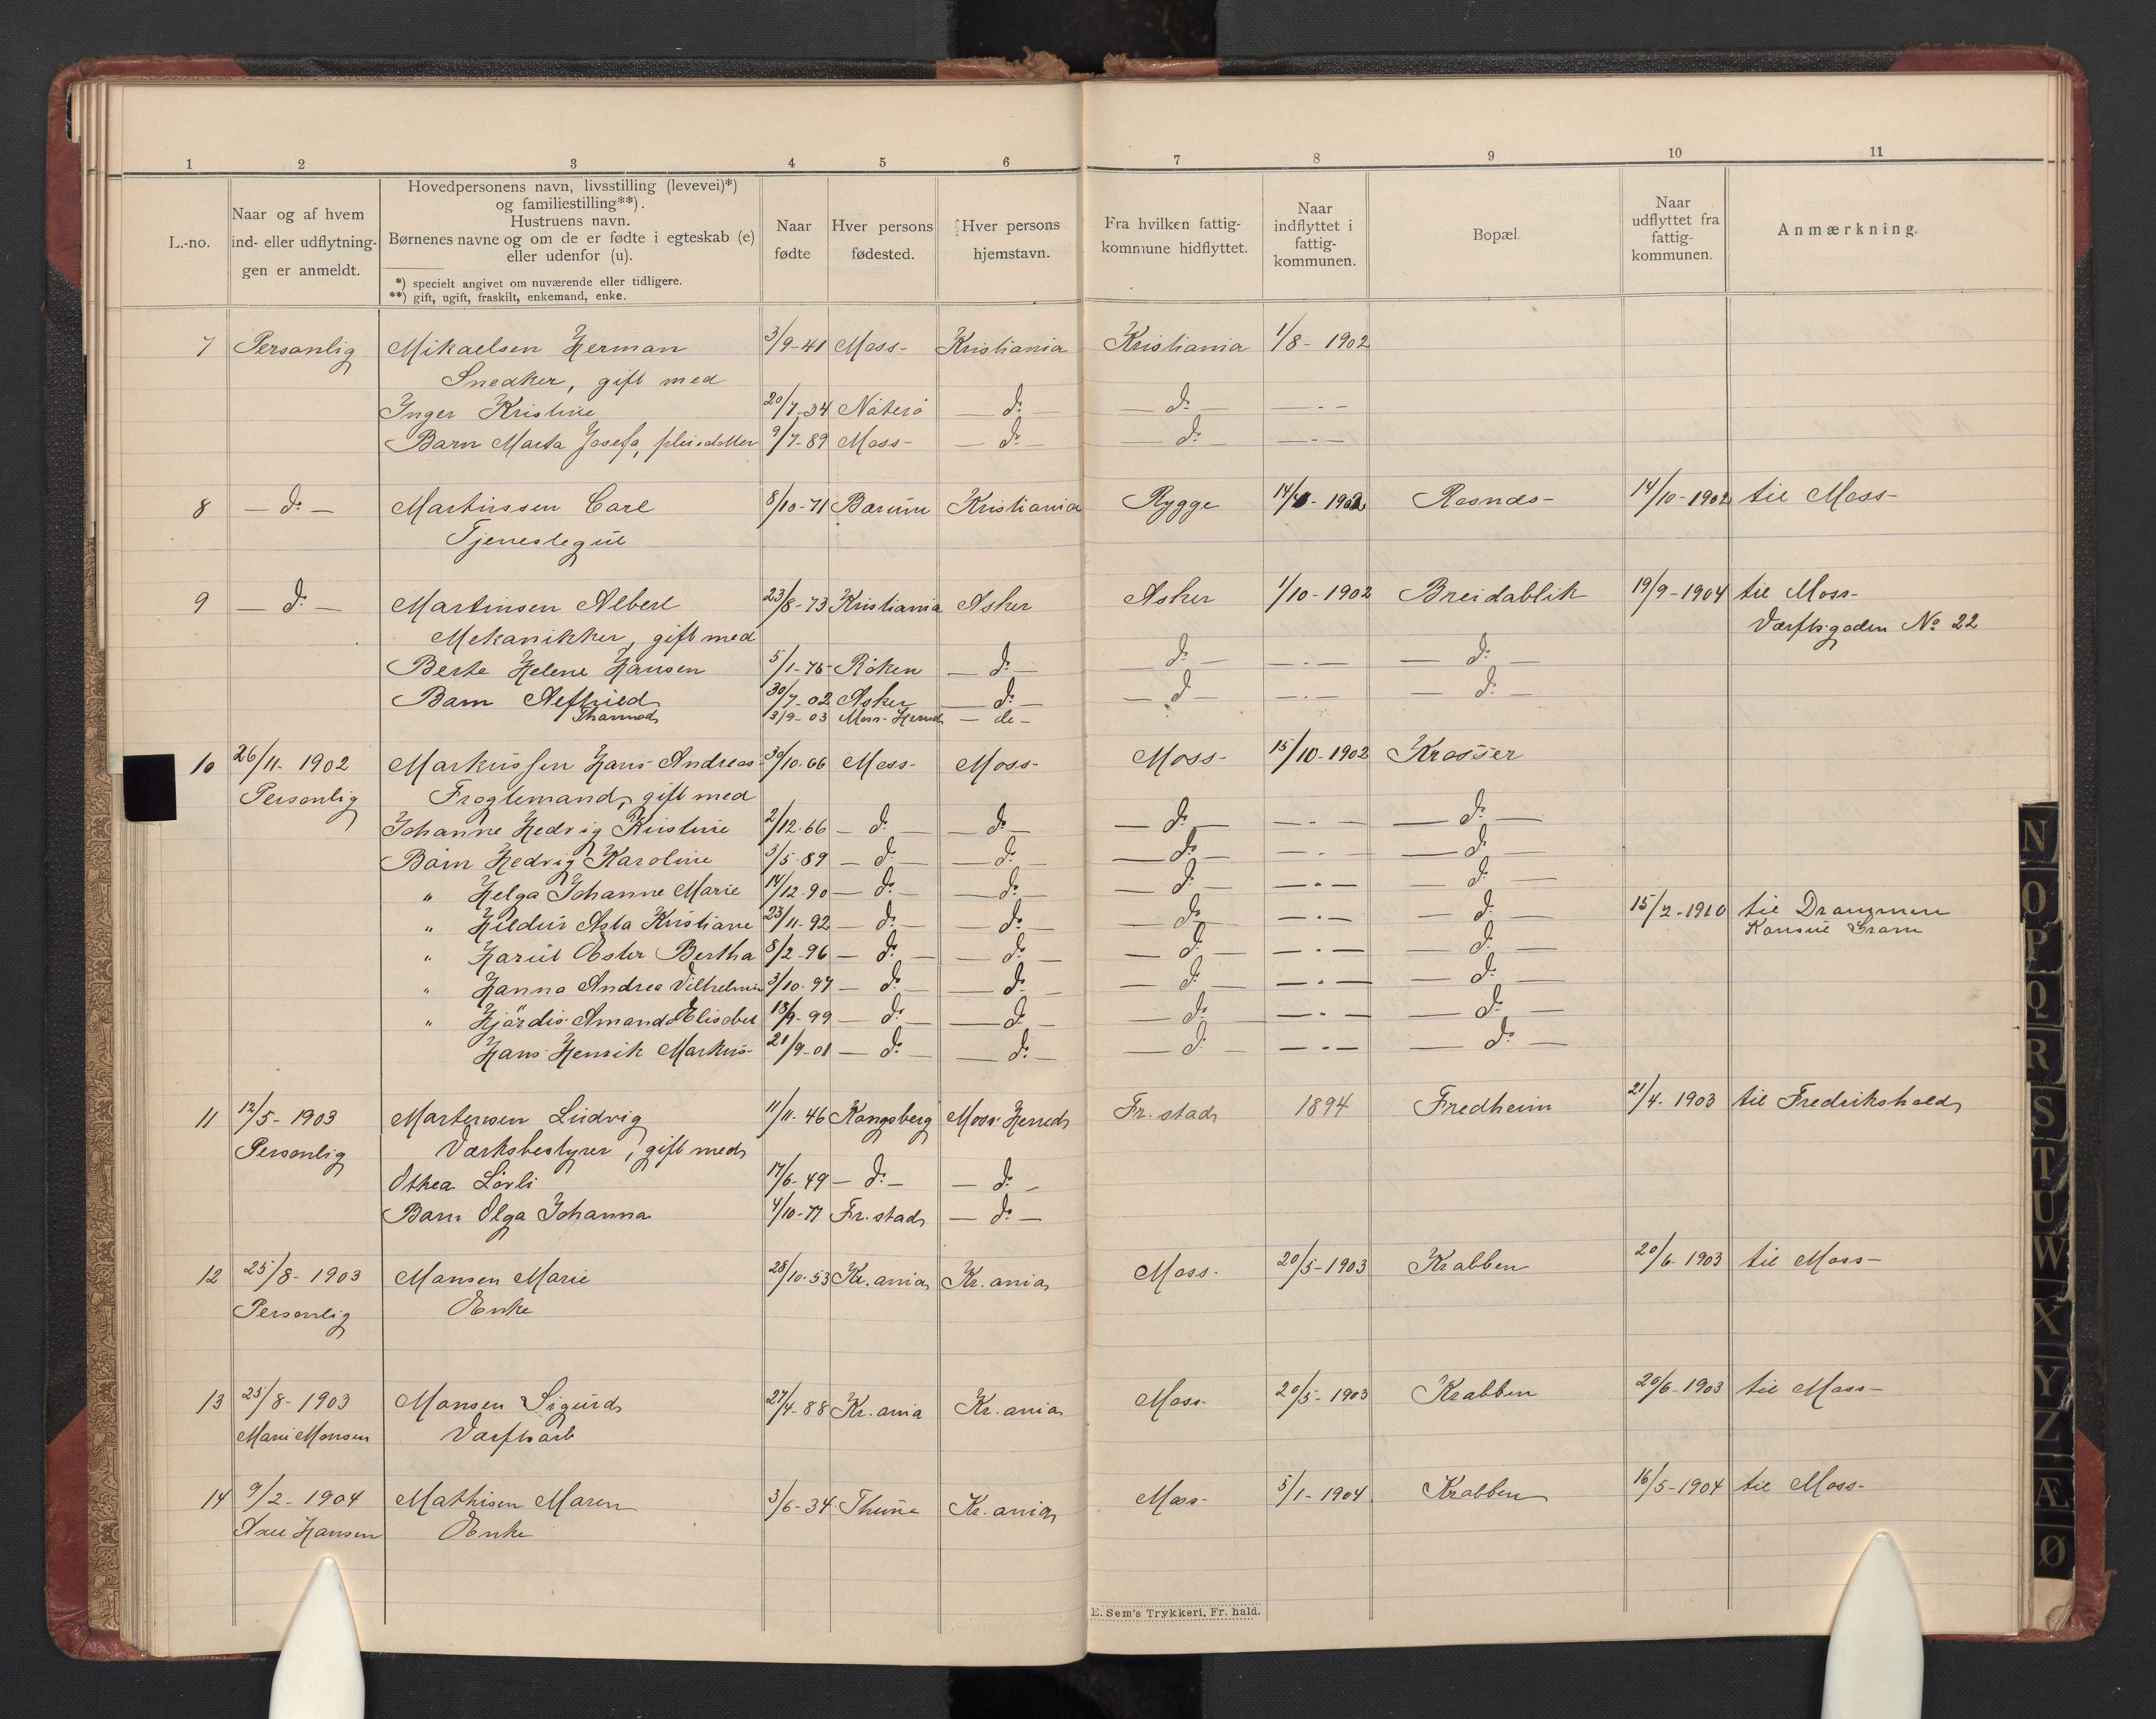 1 2 3 4 5 6 7 8 9 10 11
L.-no.
Naar og af hvem
ind- eller udflytnin-
gen er anmeldt.
Hovedpersonens navn, livsstilling (levevei)*)
og familiestilling**).
Hustruens navn.
Børnenes navne og om de er fødte i egteskab (e)
eller udenfor (u).
*) specielt angivet om nuværende eller tidligere.
**) gift, ugift, fraskilt, enkemand, enke.
Naar
fødte
Hver persons
fødested.
Hver persons
hjemstavn.
Fra hvilken fattig-
kommune hidflyttet.
Naar
indflyttet i
fattig-
kommunen.
Bopæl
Naar
udflyttet fra
fattig-
kommunen.
Anmærkning.
7 Personlig Mikaelsen Herman 3/9-41 Moss- Kristiania Kristiania 1/8-1902
Snedker, gift med
Inger Kristine 20/7-34 Nøterø — do — — do — — . —
Barn Marta Josefa, pleiedatter 9/7-89 Moss- — do — — do — — . —
8 — do — Martinssen Carl 8/10-71 Bærum Kristiania Rygge 1902 Rosnes- 14/10-1902 til Moss-
Tjenestegut
9 — do — Martinsen Albert 23/8-73 Kristiania Asker Asker 1/10-1902 Breidablik 19/9-1904 til Moss-
Mekanikker, gift med Værftsgaden No 22
Berte Helene Hansen 5/1-75 Røken — do — — do — — . — — do —
Barn 30/7-02 Asker — do — — do — — . — — do —
Thormod 3/9-03 Moss-Herred — do —
10 26/11-1902 Markussen Hans Andreas 30/10-66 Moss- Moss- Moss- 15/10-1902 Krosser
Personlig Fragtemand, gift med
Johanne Hedvig Kristine 2/12-66 — do — — do — — do — — . — — do —
Børn Hedvig Karoline 3/5-89 — do — — do — — do — — . — — do —
" Helga Johanne Marie 14/12-90 — do — — do — — do — — . — do —
" Hildur Asta Kristiane 23/11-92 — do — — do — — do — — . — — do — 15/2-1910 til Drammen
Konsul Gram
" Hariet Ester Bertha 8/2-96 — do — — do — — do — — . — — do —
" Hanna Andrea Vilhelmine 3/10-97 — do — — do — — do — — . — — do —
" Hjørdis Amanda Elisabet 18/9-99 — do — — do — — do — — . — — do —
Hans Henrik Markus- 21/9-01 — do — — do — — do — — . — — do —
11 12/5-1903 Martinsen Ludvig 11/11-46 Kongsberg Moss Herred Fr. stad 1894 Fredheim 21/4-1903 til Fredrikshald
Personlig Værksbestyrer, gift med
Othea Lövli 17/6-49 — do — — do —
Barn Olga Johanna 4/10-77 Fr. stad — do —
12 25/8-1903 Monsen Marie 28/10-53 Kr. ania Kr. ania Moss- 20/5-1903 Krabben 20/6-1903 til Moss-
Personlig Enke
13 25/8-1903 Monsen Sigurd 27/4-88 Kr. ania Kr. ania Moss- 20/5-1903 Krabben 20/6-1903 til Moss-
Marie Monsen Værftsarb
14 9/2-1904 Mathisen Maren 3/6-34 Thune Kr. ania Moss- 5/1-1904 Krabben 16/5-1904 til Moss-
Hansen Enke
E. Sem's Trykkeri, Fr. hald.
N
O
P
Q
R
S
T
U
W
X
Y
Z
Æ
Ø